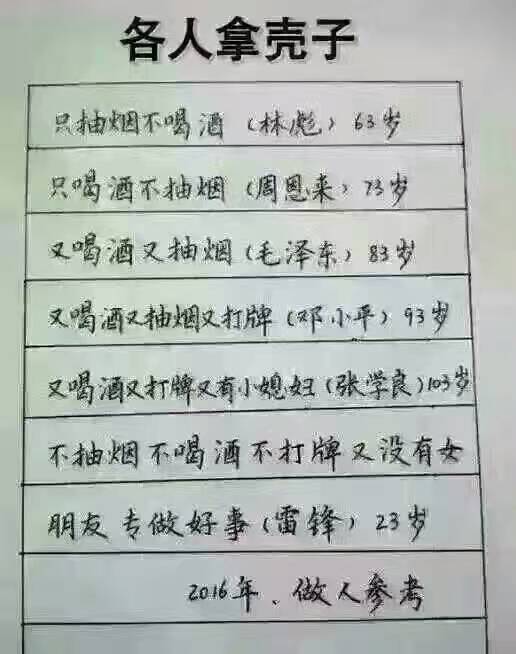 各人拿壳子
只抽烟不喝酒（林彪）63岁
只喝酒不抽烟（周恩来）73岁
又喝酒又抽烟（毛泽东）83岁
又喝酒又抽烟又打牌（邓小平）93岁
又喝酒又打牌又有小媳妇（张学良）103岁
不抽烟不喝酒不打牌又没有女
朋友专做好事（雷锋）23岁
2016年、做人参考